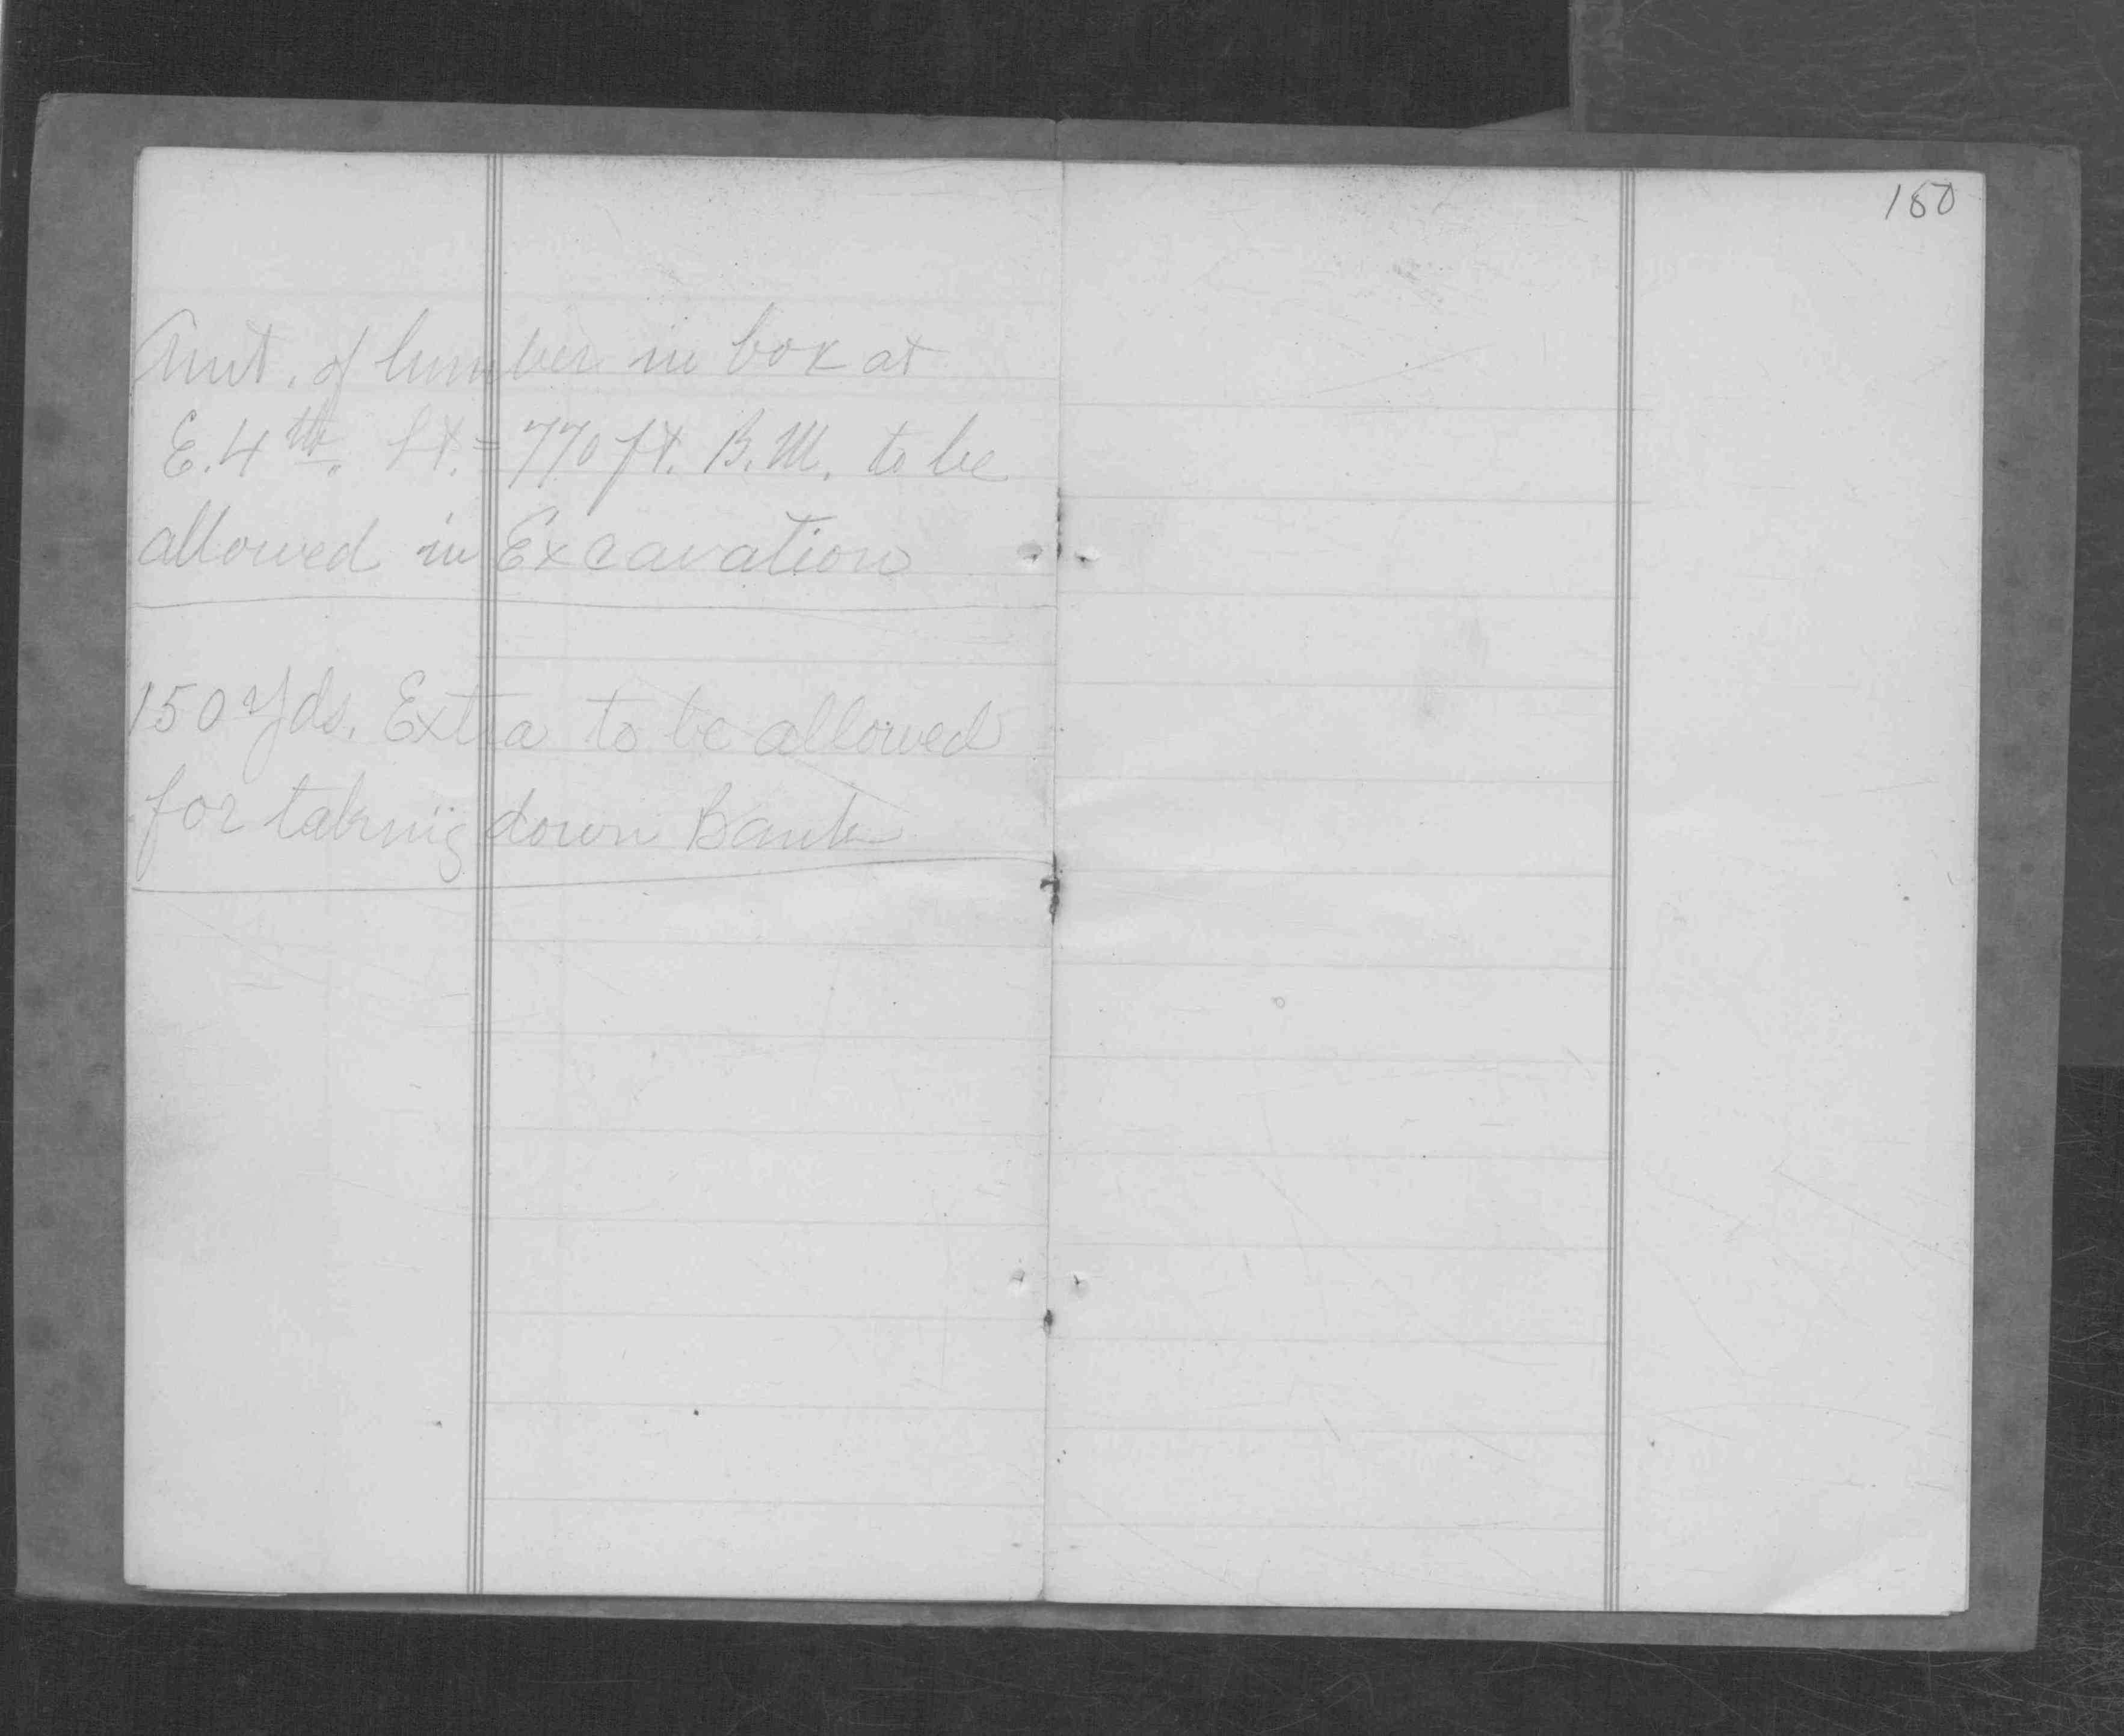 Amt. of lumber in box at
E. 4th. St. = 770 ft. B.M. to be
allowed in Excavation
150 Yds. Extra to be allowed
for taking down Bank
150